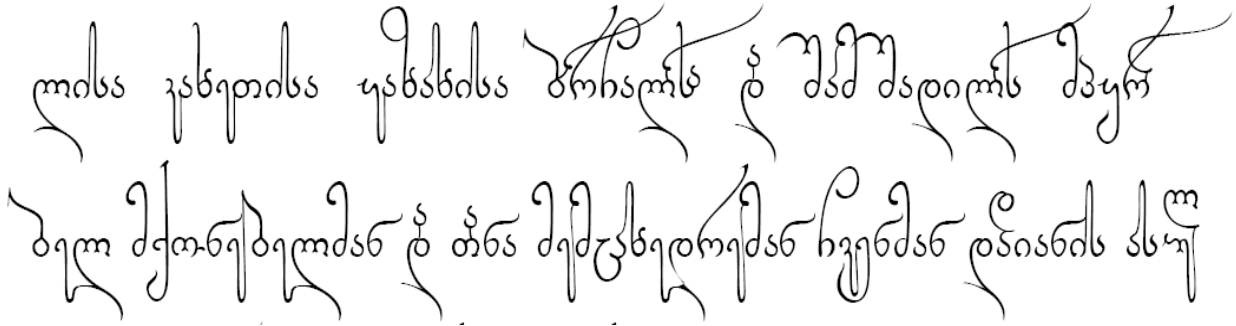 ლისა კახეთისა ყაზახისა ბორჩალოსა და შამშადილოს მპყრო
ბელ მქონებელმან და თანა მემცხედრემან ჩვენმან დადიანის ასულ